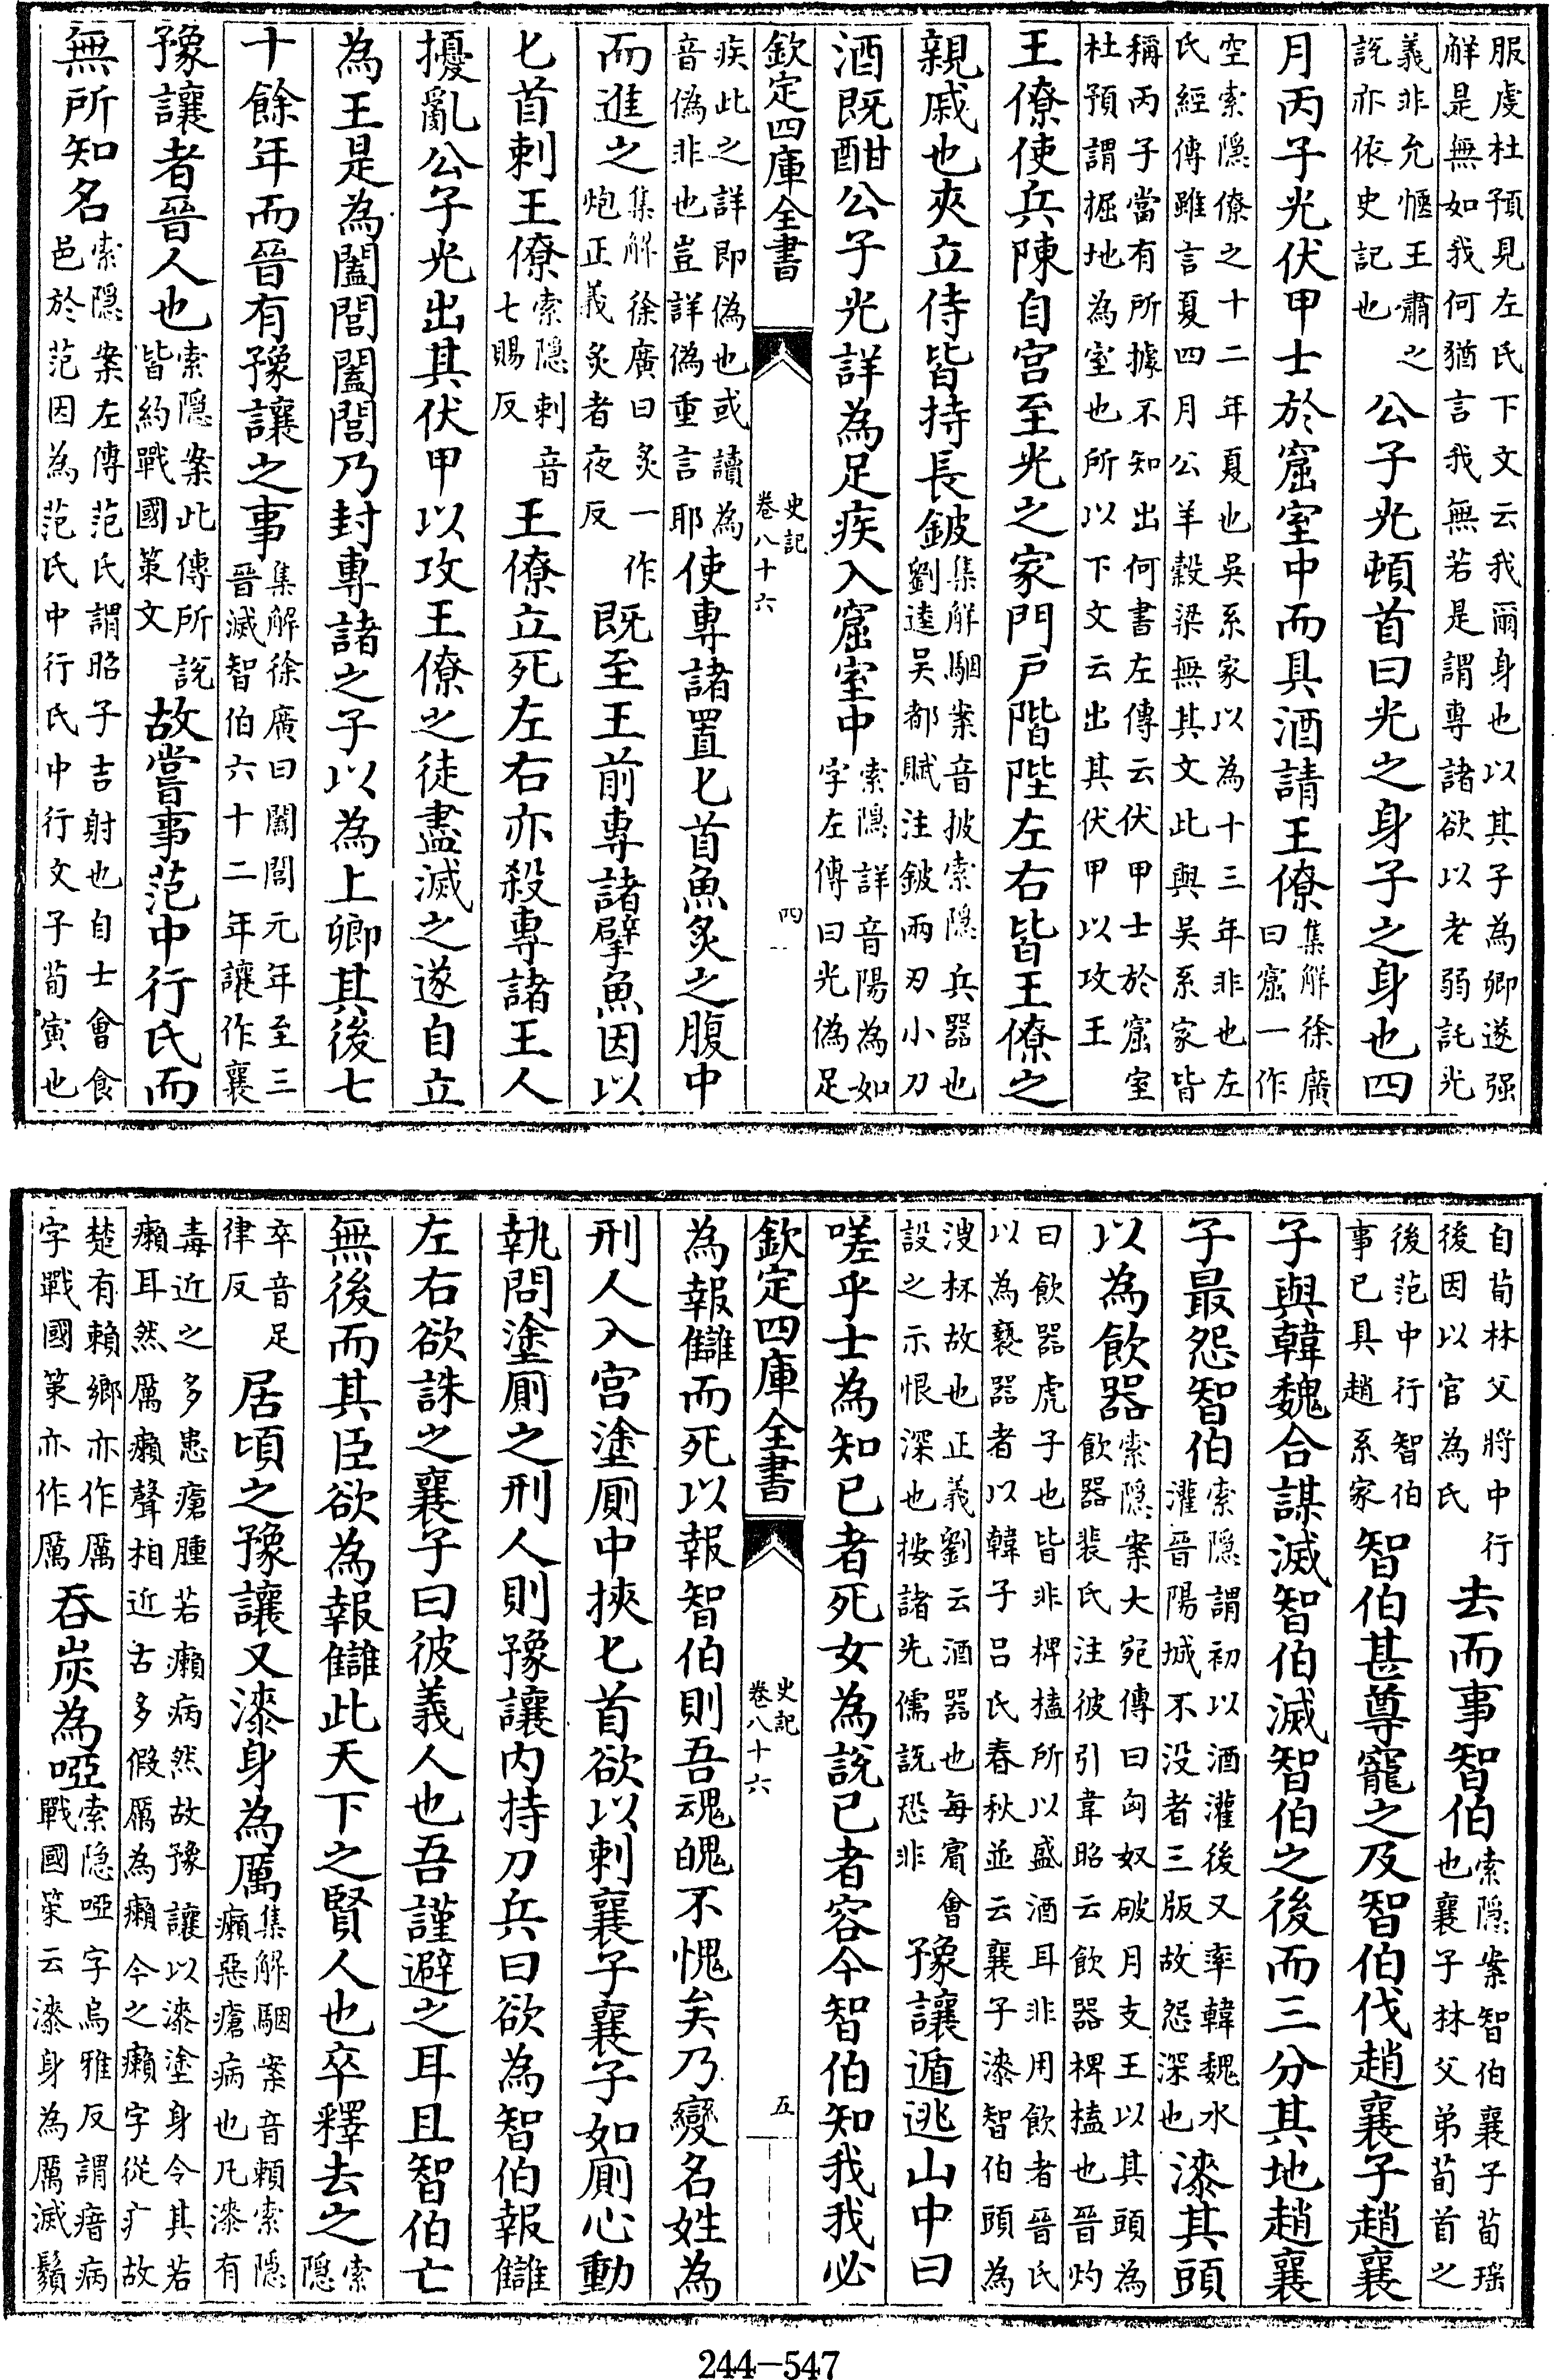 服虔杜預見左氏下文云我爾身也以其子為卿遂强
解是無如我何猶言我無若是謂專諸欲以老弱託光
義非允愜王肅之
説亦依史記也
公子光頓首曰光之身子之身也四
月丙子光伏甲士於窟室中而具酒請王僚集解徐廣
曰窟一作
空索隠僚之十二年夏也吳系家以為十三年非也左
氏經傳雖言夏四月公羊穀梁無其文此與吳系家皆
稱丙子當有所據不知出何書左傳云伏甲士於窟室
杜預謂掘地為室也所以下文云出其伏甲以攻王
王僚使兵陳自宫至光之家門戸階陛左右皆王僚之
親戚也夾立侍皆持長鈹集解駰案音披索隠兵器也
劉逵吳都賦注鈹兩刃小刀
酒既酣公子光詳為足疾入窟室中索隠詳音陽為如
字左傳曰光偽足
欽定四庫全書
史記
卷八十六
四
疾此之詳即偽也或讀為
音偽非也豈詳偽重言耶
使專諸置匕首魚炙之腹中
而進之集解徐廣曰炙一作
炮正義炙者夜反
既至王前專諸擘魚因以
匕首刺王僚索隠刺音
七賜反
王僚立死左右亦殺專諸王人
擾亂公子光出其伏甲以攻王僚之徒盡滅之遂自立
為王是為闔閭闔閭乃封專諸之子以為上卿其後七
十餘年而晉有豫讓之事集解徐廣曰闔閭元年至三
晉滅智伯六十二年讓作襄
豫讓者晉人也索隠案此傳所説
皆約戰國策文
故嘗事范中行氏而
無所知名索隠案左傳范氏謂昭子吉射也自士會食
邑於范因為范氏中行氏中行文子荀寅也
自荀林父將中行
後因以官為氏
去而事智伯索隠案智伯襄子荀瑶
也襄子林父弟荀首之
後范中行智伯
事已具趙系家
智伯甚尊寵之及智伯伐趙襄子趙襄
子與韓魏合謀滅智伯滅智伯之後而三分其地趙襄
子最怨智伯索隠謂初以酒灌後又率韓魏水
灌晉陽城不没者三版故怨深也
漆其頭
以為飲器索隠案大宛傳曰匈奴破月支王以其頭為
飲器裴氏注彼引韋昭云飲器椑榼也晉灼
曰飲器虎子也皆非椑榼所以盛酒耳非用飲者晉氏
以為褻器者以韓子吕氏春秋並云襄子漆智伯頭為
溲杯故也正義劉云酒器也每賔會
設之示恨深也按諸先儒説恐非
豫讓遁逃山中曰
嗟乎士為知已者死女為説已者容今智伯知我我必
欽定四庫全書
史記
卷八十六
五
為報讎而死以報智伯則吾魂魄不愧矣乃變名姓為
刑人入宫塗厠中挾匕首欲以刺襄子襄子如厠心動
執問塗厠之刑人則豫讓内持刀兵曰欲為智伯報讎
左右欲誅之襄子曰彼義人也吾謹避之耳且智伯亡
無後而其臣欲為報讎此天下之賢人也卒釋去之索
隠
卒音足
律反
居頃之豫讓又漆身為厲集解駰案音賴索隠
癩惡瘡病也凡漆有
毒近之多患瘡腫若癩病然故豫讓以漆塗身令其若
癩耳然厲癩聲相近古多假厲為癩今之癩字從疒故
楚有賴鄉亦作厲
字戰國策亦作厲
吞炭為啞索隠啞字烏雅反謂瘖病
戰國策云漆身為厲滅鬚
244—547